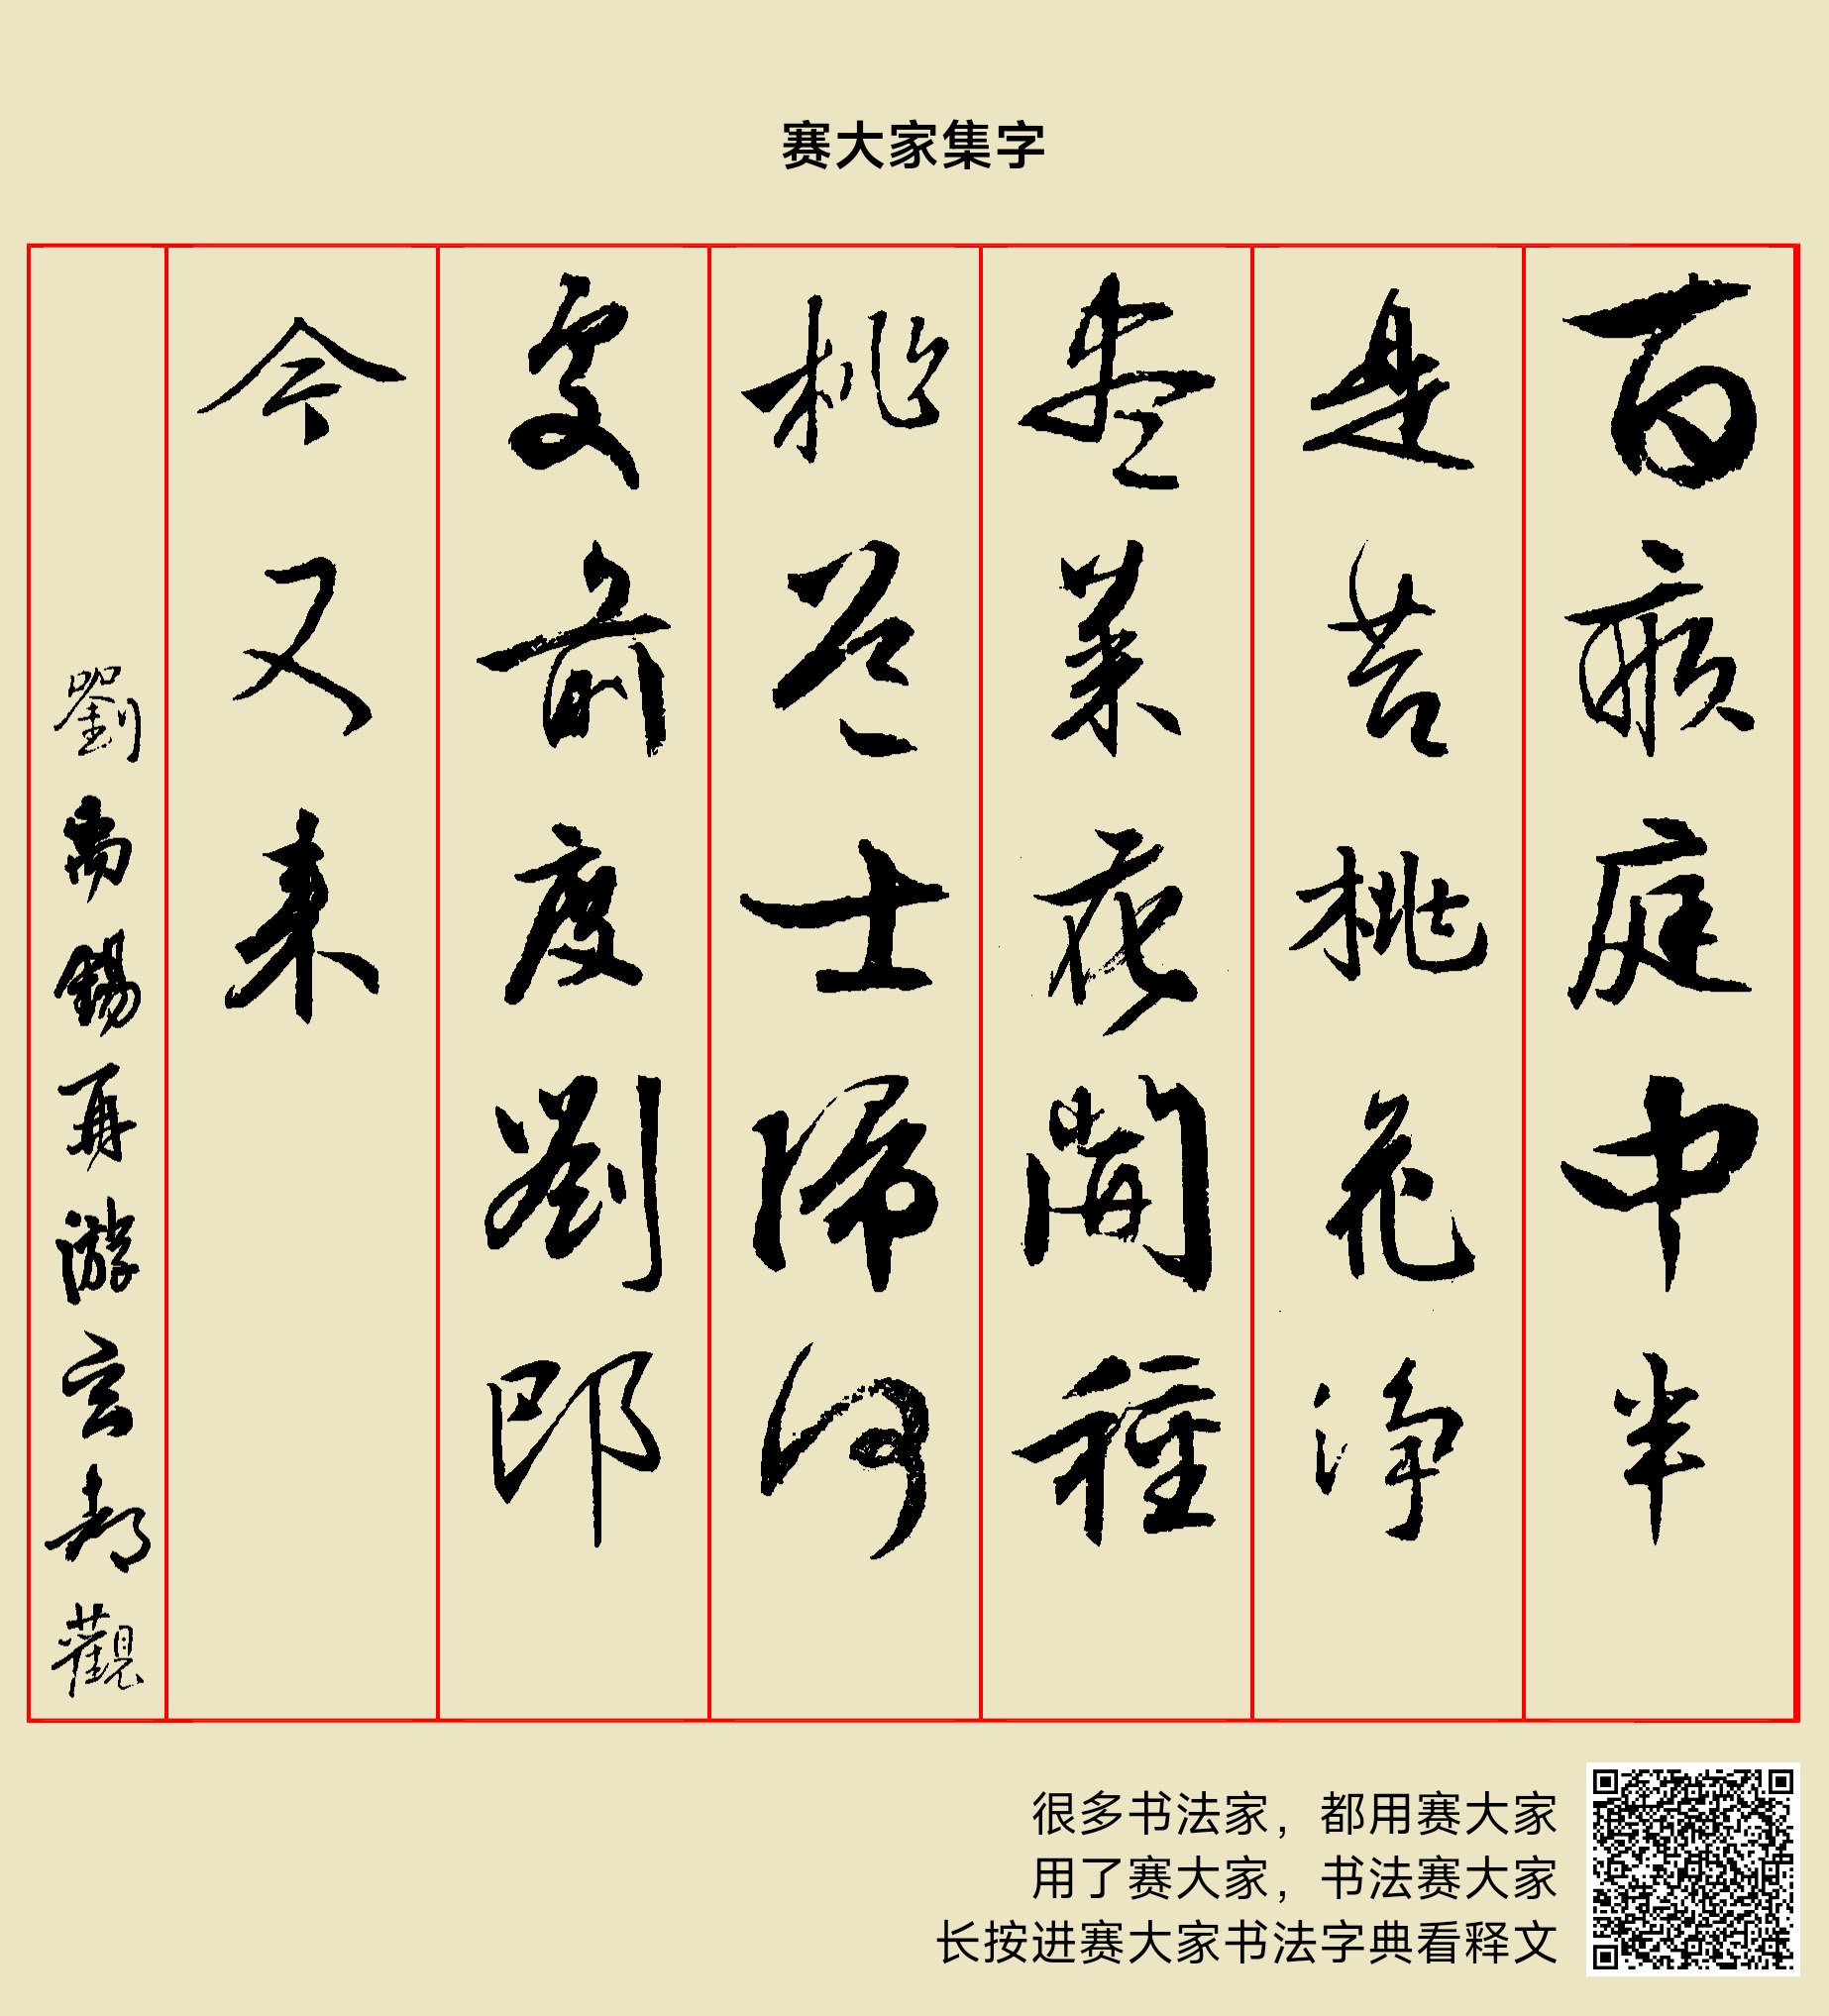 赛大家集字
百畝庭中半
是苔桃花净
盡菜花開種
桃道士歸何
處前度劉郎
今又来
劉禹錫再游玄都觀
很多书法家，都用赛大家
用了赛大家，书法赛大家
长按进赛大家书法字典看释文